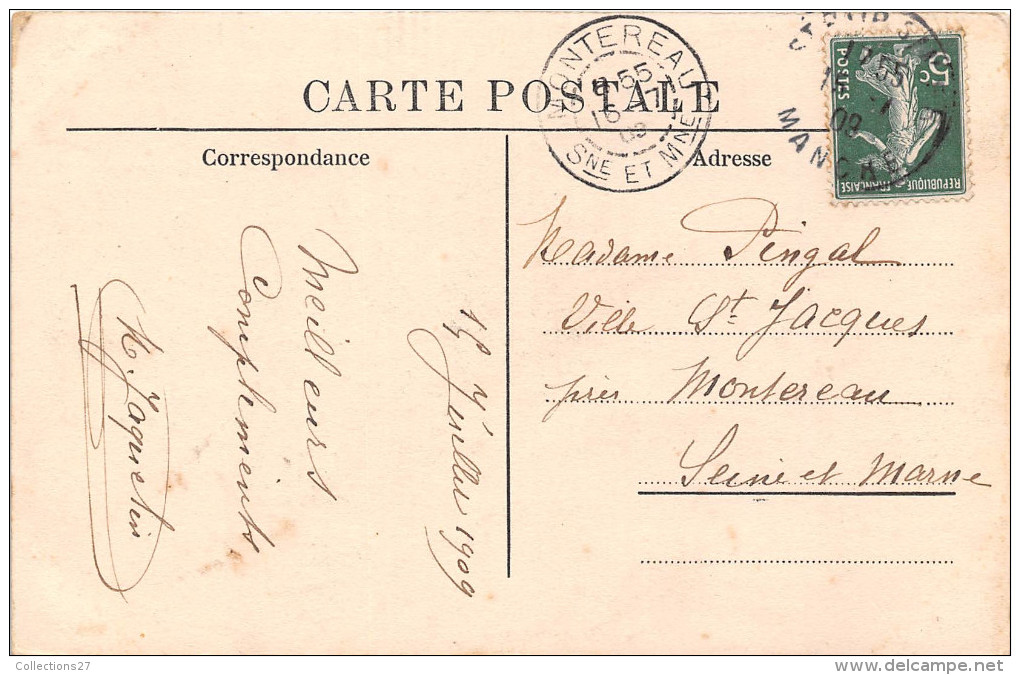 CARTE POSTALE
Correspondance
Adresse
MONTEREAU
8 55
16 -7
09
SNE ET MNE
15
09
MANCHE
5c
POSTES
REPUBLIQUE FRANÇAISE
15 Juillet 1909
Meilleurs
Compliments
Madame Pingal
Ville St. Jacques
près Montereau
Seine et Marne
Collections27
delcampe.net